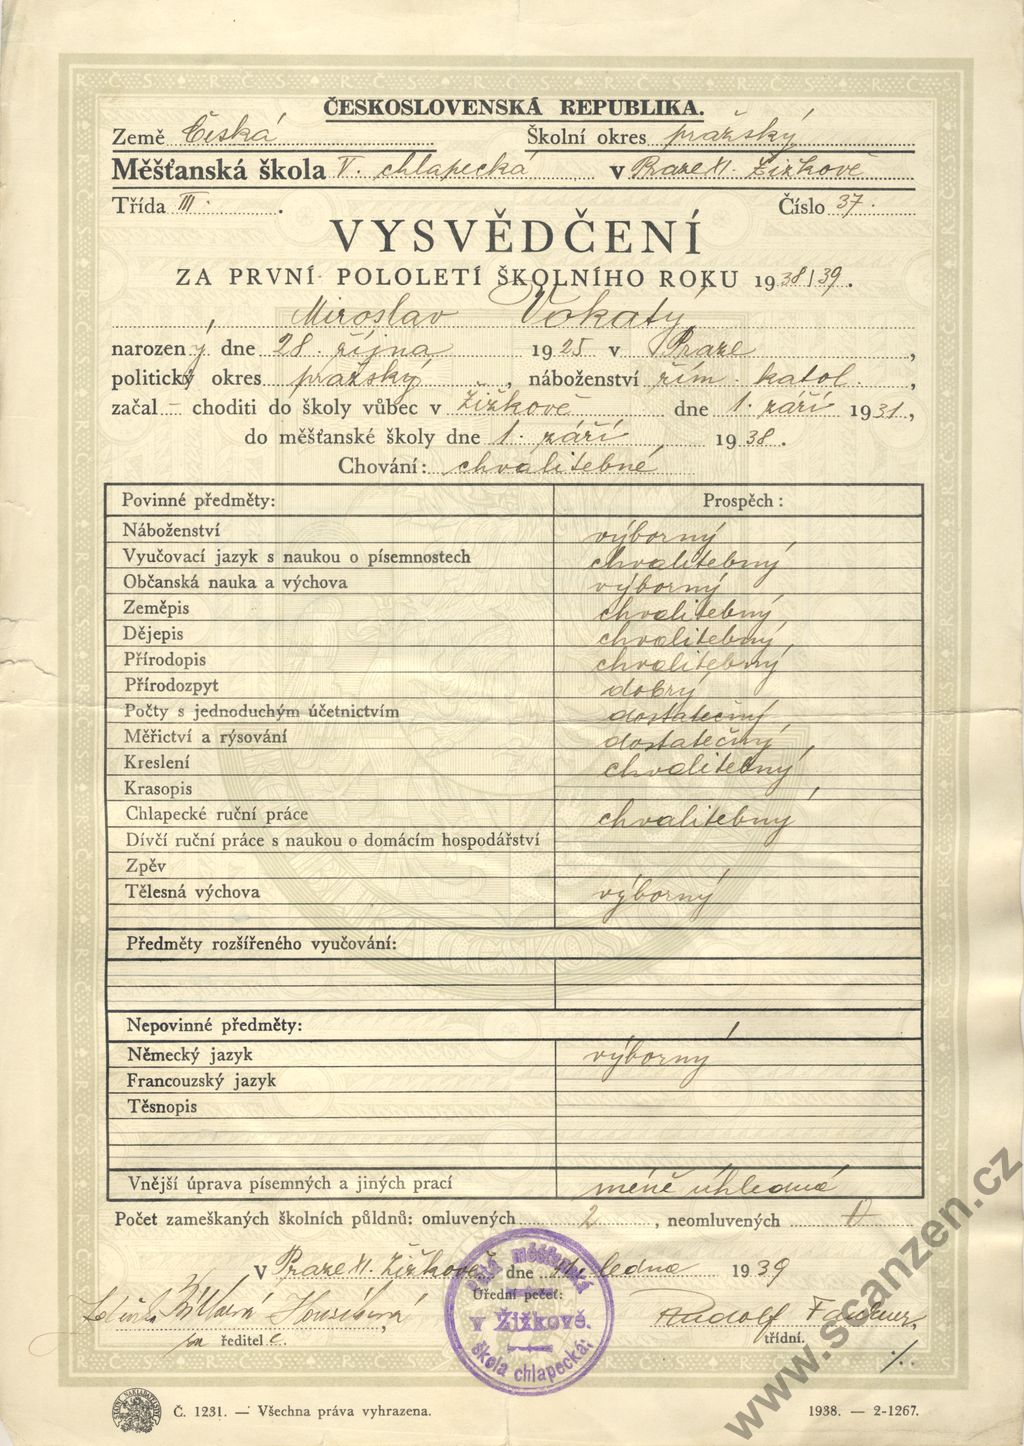 ČESKOSLOVENSKÁ REPUBLIKA.
Země Česká Školní okres pražský
Měšťanská škola V. chlapecká v Praze XI. Žižkově
Třída III. Číslo 37.
VYSVĚDČENÍ
ZA PRVNÍ POLOLETÍ ŠKOLNÍHO ROKU 1938/39.
Miroslav Vokatý,
narozen ý dne 28. října 1925 v Praze,
politický okres pražský, náboženství řím. katol.,
začal – choditi do školy vůbec v Žižkově dne 1. září 1931,
do měšťanské školy dne 1. září 1938.
Chování: chvalitebné
Povinné předměty: Prospěch:
Náboženství výborný
Vyučovací jazyk s naukou o písemnostech chvalitebný
Občanská nauka a výchova výborný
Zeměpis chvalitebný
Dějepis chvalitebný
Přírodopis chvalitebný
Přírodozpyt dobrý
Počty s jednoduchým účetnictvím dostatečný
Měřictví a rýsování dostatečný
Kreslení chvalitebný
Krasopis
Chlapecké ruční práce chvalitebný
Dívčí ruční práce s naukou o domácím hospodářství
Zpěv
Tělesná výchova výborný
Předměty rozšířeného vyučování:
Nepovinné předměty:
Německý jazyk výborný
Francouzský jazyk
Těsnopis
Vnější úprava písemných a jiných prací méně úhledná
Počet zameškaných školních půldnů: omluvených 2, neomluvených 0
v Praze XI. Žižkově dne ledna 1939
Úřední pečeť:
měšťanská
v Žižkově.
škola chlapecká
Rudolf
ředitel
třídní.
Č. 1231. — Všechna práva vyhrazena. 1938. — 2-1267.
www.scanzen.cz